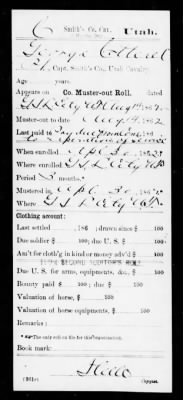 C Smith's Co. Cav. Utah.
George
2 Lt, Capt. Smith's Co., Utah Cavalry.
Age years.
Appears on Co. Muster-out Roll, dated
G S L City UT Aug 14, 1862.
Muster-out to Aug 14, 1862
Last paid to Pay due from
to expiration of service
When enrolled Apl 30, 1862
Where enrolled G S L City UT
Period 3 months.
Mustered in Apl 30, 1862
Where G S L City UT
Clothing account:
Last settled , 186 ; drawn since $ 100
Due soldier $ 100; due U. S. $ 100
Am't for cloth'g in kind or money adv'd $ 100
Due U. S. for arms, equipments, &c., $ 100
Bounty paid $ 100; due $ 100
Valuation of horse, $ 100
Valuation of horse equipments, $ 100
Remarks:
*The only roll on file for this organization.
Book mark:
(361e) Copyist.